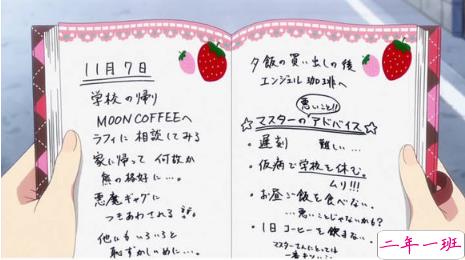 11月7日
学校の帰り
MOON COFFEEへ
ラフィに相談してみる
家に帰って何故か
熊の格好に…。
悪魔ギャグに
つきあわされる
他にもいろいろと
恥ずかしいめに…。
夕飯の買い出しの後
エンジェル珈琲へ
悪いこと!!
☆マスターのアドバイス☆
・遅刻 難しい…
・仮病で学校を休む。
ムリ!!!
・お昼ご飯を食べない。
…悪いことじゃないかも?
・1日コーヒーを飲まない。
マスターさんにとっては
一番キツい
二年一班